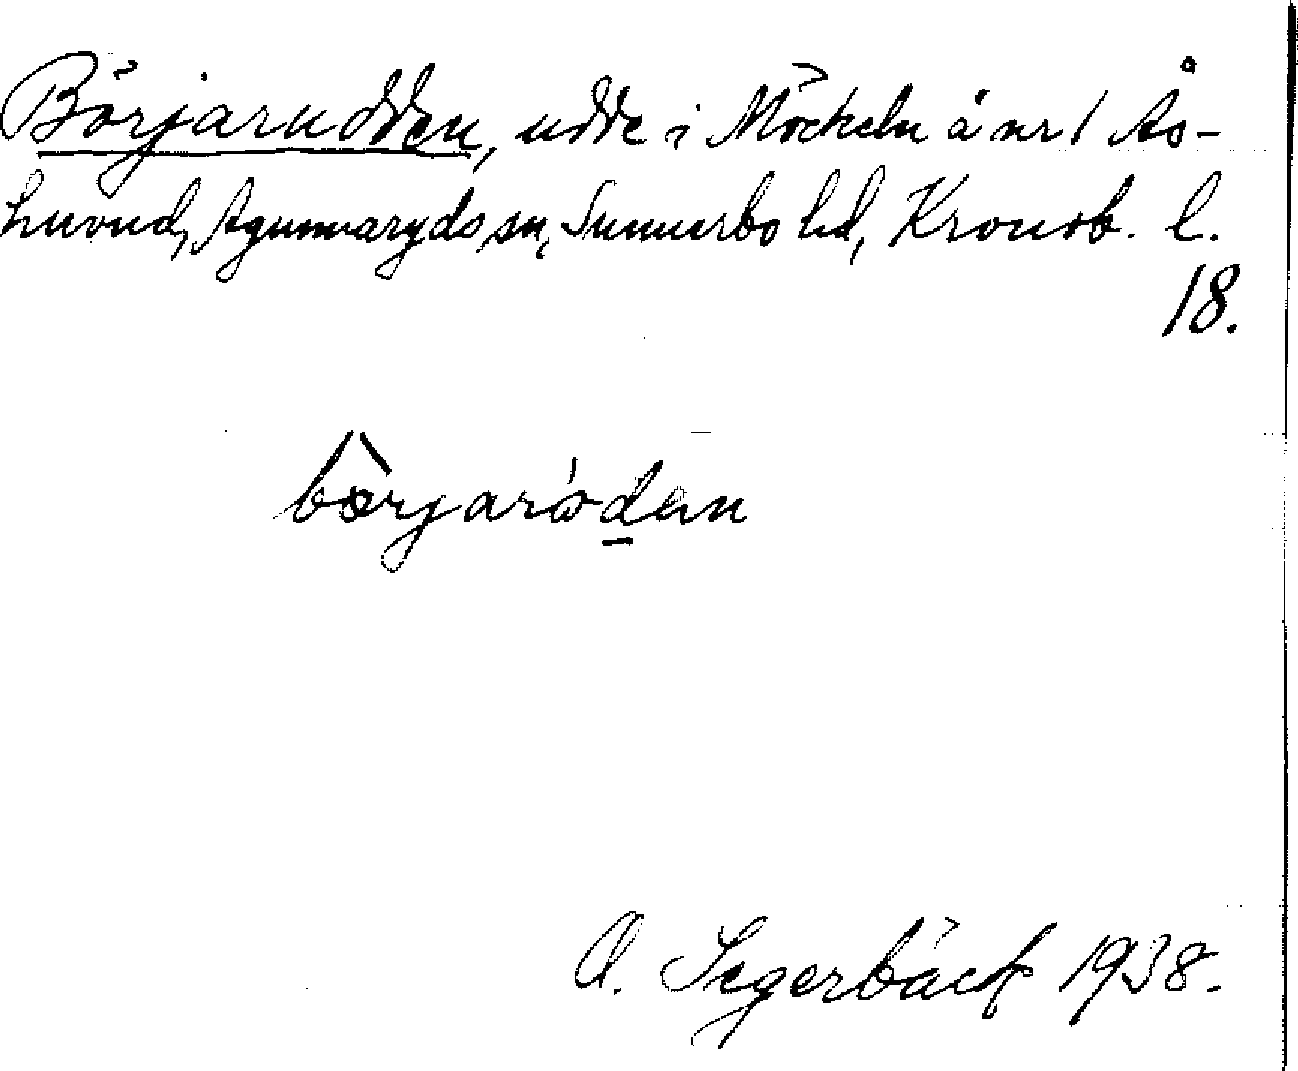 Börjarudden, udde i Möckeln å nr 1 Ås-
huvud, Agunnaryds sn, Sunnerbo hd, Kronob. l.
18.
bœrjarωden
A. Segerbäck 1938.